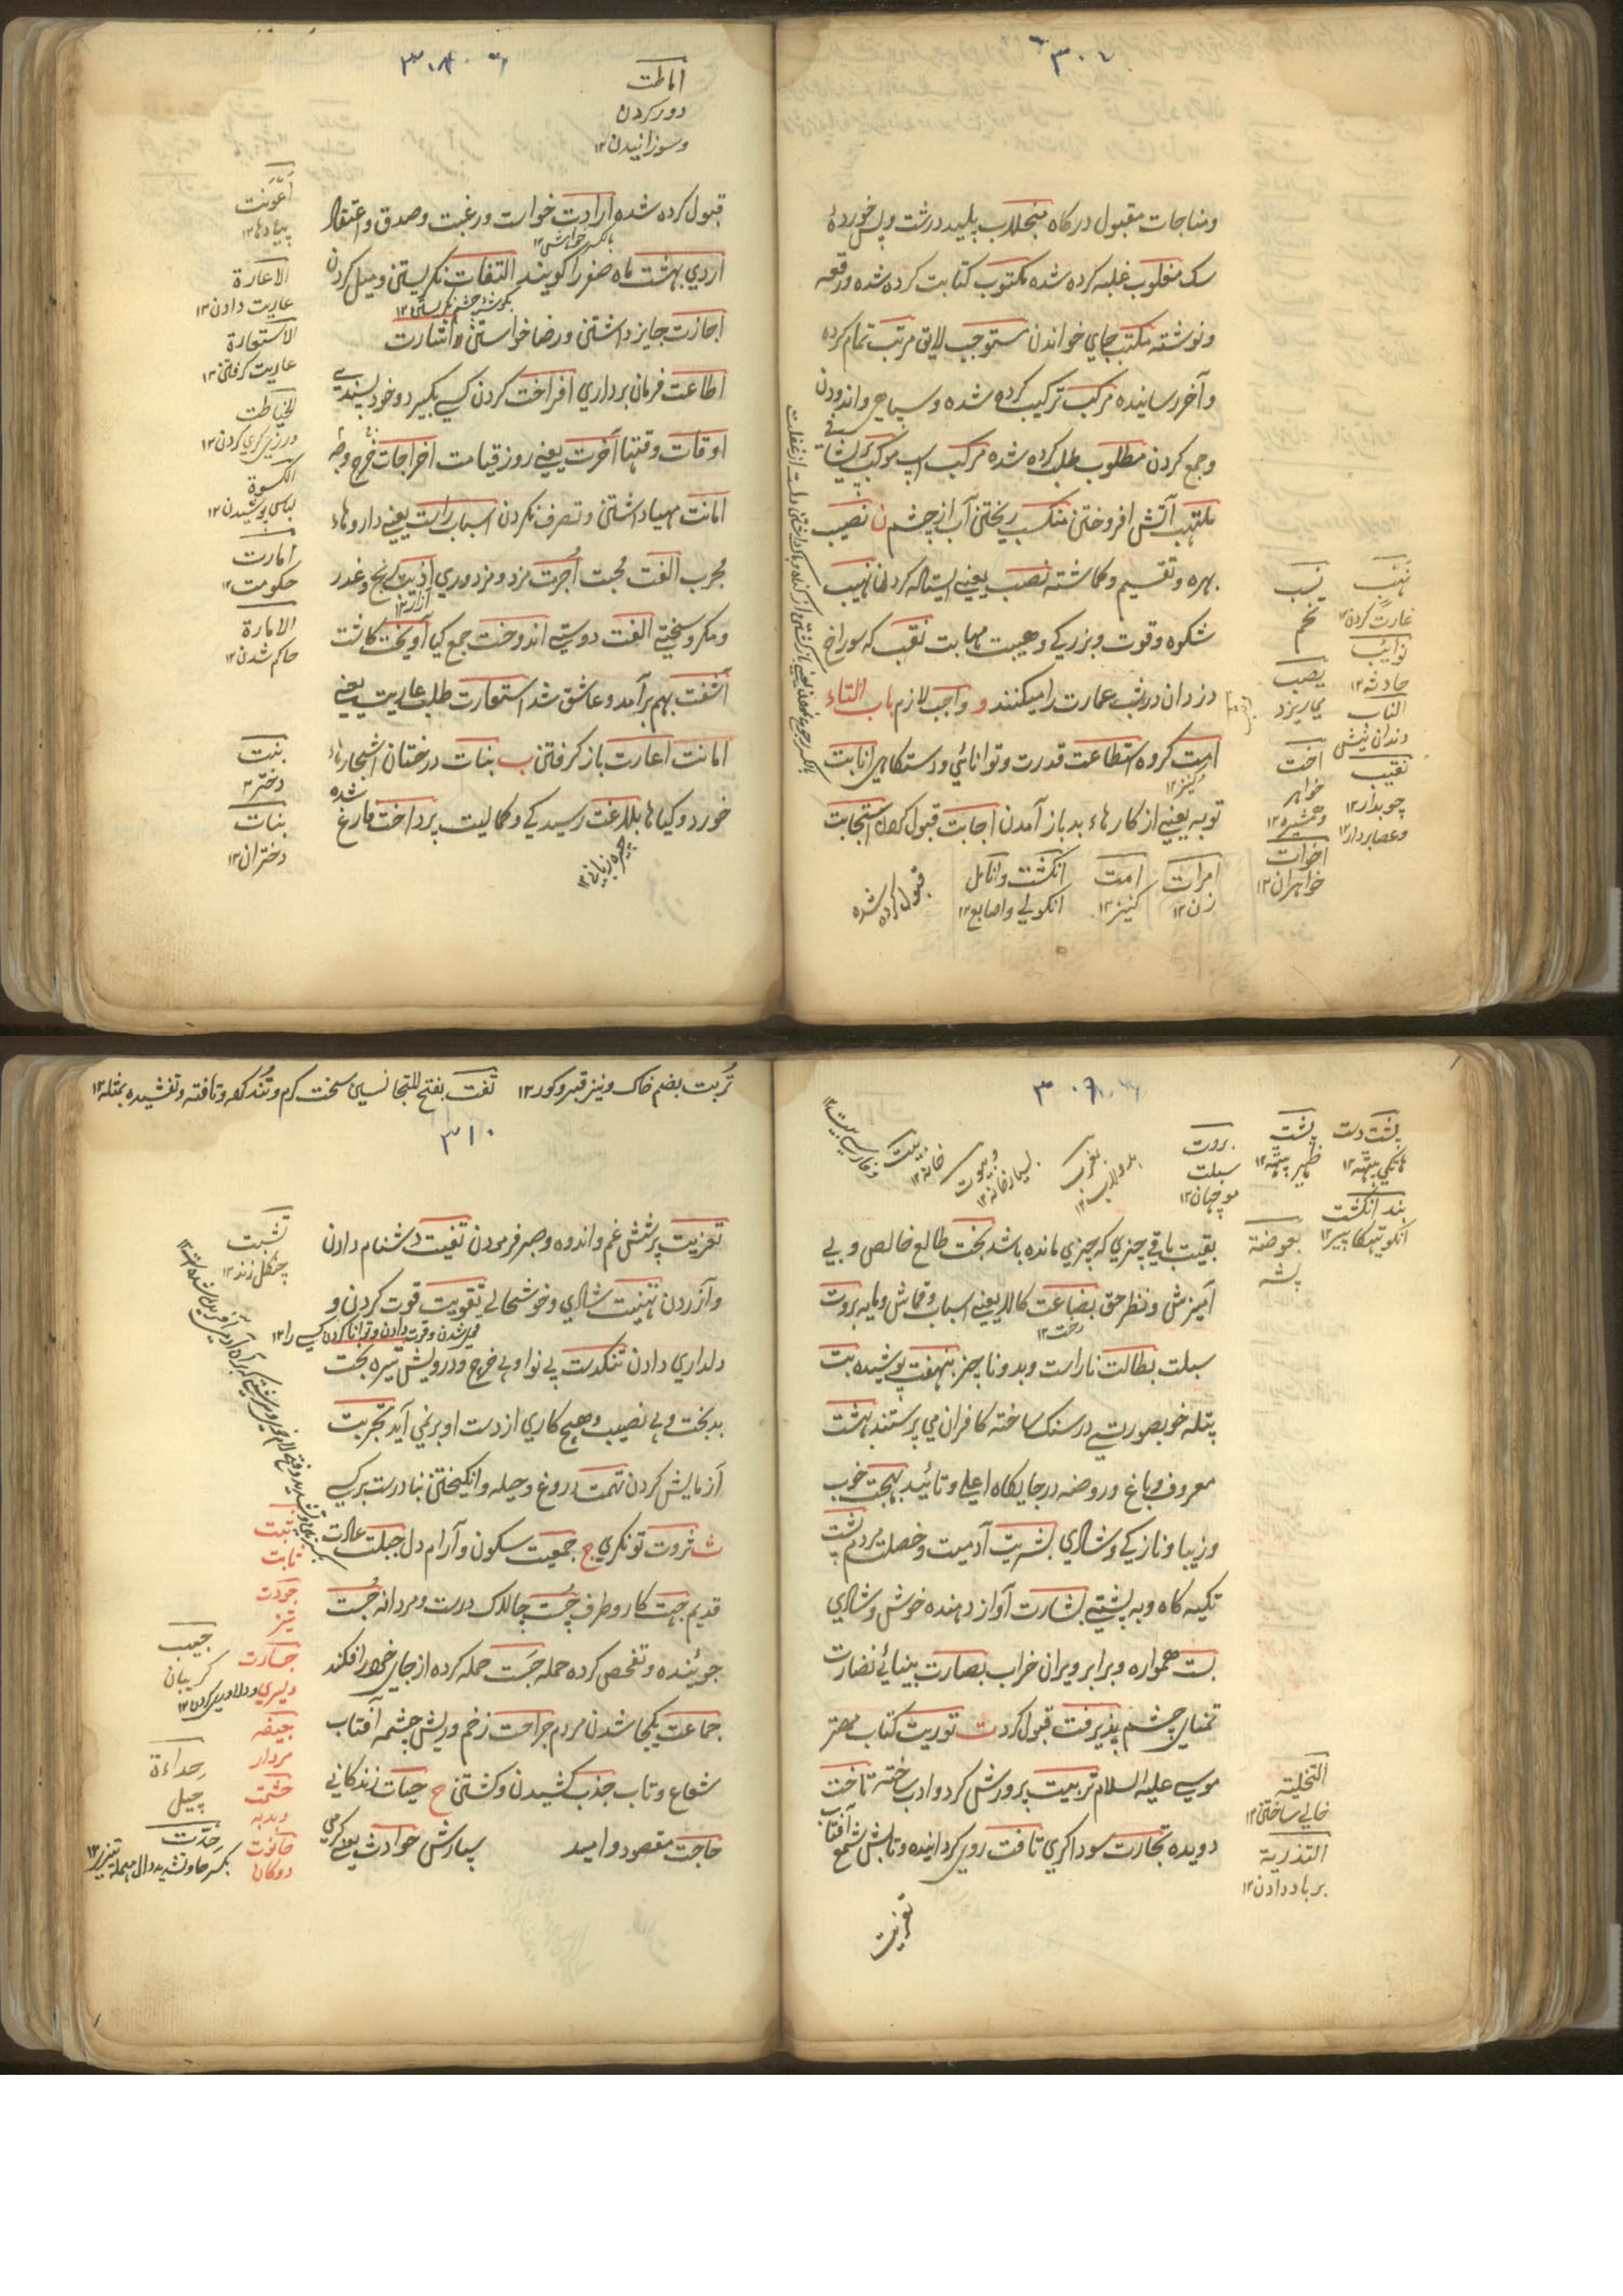 ۳۰۷
ومناجات مقبول درکاه منجلاب پلید درشت وپس خوردۀ
سک مغلوب غلبه کرده شده مکتوب کتابت کرده شده ورقعه
ونوشته مکتب جاي خواندن مستوجب لایق مرتب تمام کرده
وآخر رسانیده مرکب ترکیب کرده شده وسیاهي واندودن
وجمع کردن مطلوب طلب کرده شده مرکب اسپ موکب
ملتهب آتش افروختن منسکب ریختن آب از چشم ن نصیب
بهره وتقسیم وکماشته نصب یعني ایستاله کردن نهیب
شکوه وقوت وبزرکي وهیبت مهابت نقب که سوراخ
دزدان درشب عمارت را میکنند و واجب لازم باب التاء
امت کروه استطاعت قدرت وتوانائي ودستکاهي انابت
کنیز ۱۲
توبه یعني از کارهاء بد باز آمدن اجابت قبول کردن استجابت
قبول کرده شده
انکشت وانامل
انکولي واصابع ۱۲
امت
کنیز ۱۲
امرات
زن ۱۲
نهب
غارت کردن ۱۲
نوائب
حادثه ۱۲
الناب
دندان نیش
نقیب
چوبدار ۱۲
وعصابردار ۱۲
تخم
یصب
میاریزد
اخت
خواهر
وهمشیره ۱۲
اخوات
خواهران ۱۲
۳۰۸
اماطت
دور کردن
وسوزانیدن ۱۲
قبول کرده شده ارادت خواست ورغبت وصدق واعتقاد
اردي بهشت ماه صفر را کویند التفات نکریستن ومیل کردن
بکوشۀ چشم نکریستن ۱۲
اجازت جایز داشتن ورضا خواستن و اشارت
اطاعت فرمان برداري افراخت کردن کسي بکبیر وخود پسندي
اوقات وقتها آخرت یعني روز قیامت اخراجات خرج
امانت مهیا داشتن وتصرف نکردن اسباب راست یعني داروهاء
مجرب الفت محبت اجرت مزد ومزدوري اذیت رنج وغدر
آزار ۱۲
ومکر وسختي الفت دوستي اندوخت جمع کیا آویخت کاشت
آشفت بهم برآمد وعاشق شد استعارت طلب عاریت یعني
امانت اعارت باز کرفتن ب بنات درختان اشجارهاء
خورد وکیاها بلاغت رسیدکي وکمالیت پرداخت فارغ شده
الاعارة
عاریت دادن ۱۲
الاستعارة
عاریت کرفتن ۱۲
الخیاطت
درزي کري کردن ۱۲
الکسوة
لباس پوشیدن ۱۲
امارت
حکومت ۱۲
الامارة
حاکم شدن ۱۲
بنت
دختر ۱۲
بنات
دختران ۱۲
۳۰۹
پشت
ظهر پیٹھ ۱۲
بروت
سبلت
موچهان ۱۲
بند انکشت
بعوضة
پشه
بقیت باقي چیزي که چیزي مانده باشد بخت طالع خالص وبي
آمیزش ونظر حق بضاعت کالا یعني اسباب وقماش ومایه بروت
رخت ۱۲
سبلت بطالت ناراست وبد وناچیز بنهفت پوشیده بت
پتله خوبصورتي در سنک ساخته کافران مي پرستند بهشت
معروف وباغ وروضه در جایکاه اعلي وتائید بهجت خوب
وزیبا ونازکي وشادي بشریت آدمیت وخصلت مردم پشت
تکیه کاه وبه پشتي بشارت آواز دهنده خوش وشادي
بست همواره وبرابر ویران خراب بصارت بینائي نضارت
تمنایي چشم پذیرفت قبول کرد ت توریت کتاب مهتر
موسي علیه السلام تربیت پرورش کرد وادب ساخته تاخت
دویده تجارت سوداکري تافت روي کردانیده وتابش شمع آفتاب
تعزیت
التخلیة
خالي ساختن ۱۲
التذریة
برباد دادن ۱۲
تربت بضم خاک ونیز قبر وکور ۱۲
۳۱۰
تعزیت پرسش غم واندوه وصبر فرمودن تفیت دشنام دادن
وآزردن تهنیت شادي وخوشحالي تقویت قوت کردن و
دلداري دادن تنکدست بي نوا وبي خرج ودرویش تیره بخت
بدبخت وبي نصیب وهیچ کاري از دست او برنمي آید تجربت
آزمایش کردن تهمت دروغ وحیله وانکیختن بنادرست برکسي
ث ثروت تونکري ج جمعیت سکون وآرام دل جبلت عادت
قدیم جهت کار وطرف چست چالاک درست ومردانه جست
جوئینده وتفحص کرده حمله جست حمله کرده از جاي خود را فکند
جماعت یکجا شدن مردم جراحت زخم وریش چشمه آفتاب
شعاع وتاب جذب کشیدن وکشتن ح حیات زندکاني
حاجت مقصود وامید سپارش حوادث یعني کرمي
تشبث
چنکل زند ۱۲
ثابت
جودت
تیز
جسارت
دلیري ودلاوري کردن ۱۲
جیفه
مردار
حشمت
دبدبه
حانوت
دوکان
جیب
کریبان
حداءة
چیل
حدت
بکسر حا وتشدید دال مهمله تیزي ۱۲